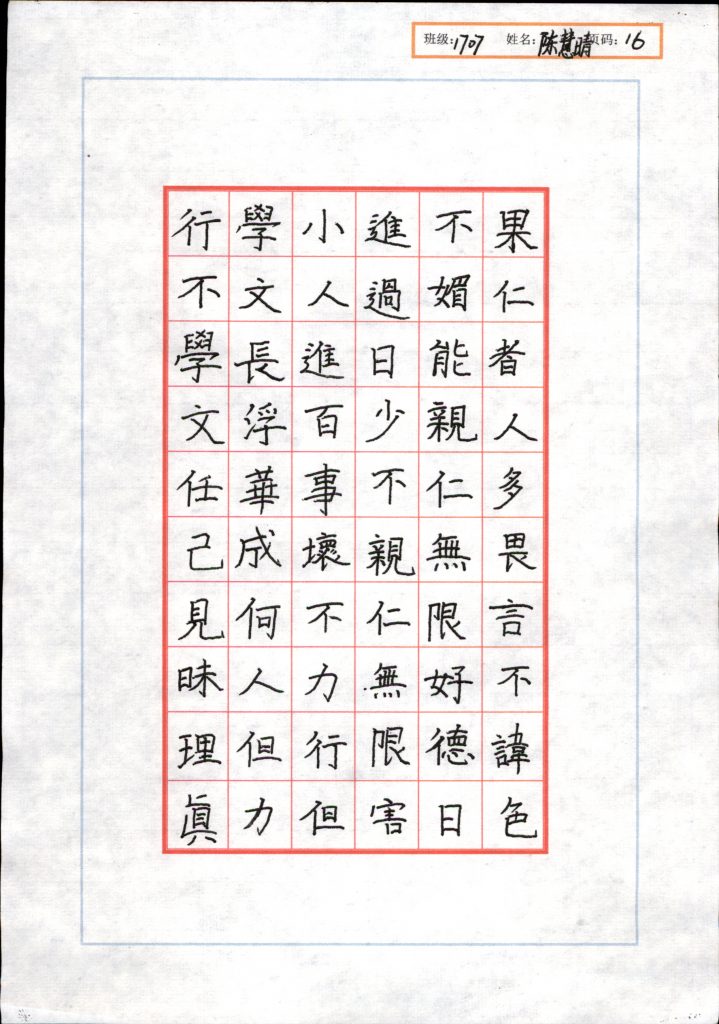 班级:1707 姓名:陈慧晴 页码:16
果仁者人多畏言不諱色
不媚能親仁無限好德日
進過日少不親仁無限害
小人進百事壞不力行但
學文長浮華成何人但力
行不學文任己見昧理眞